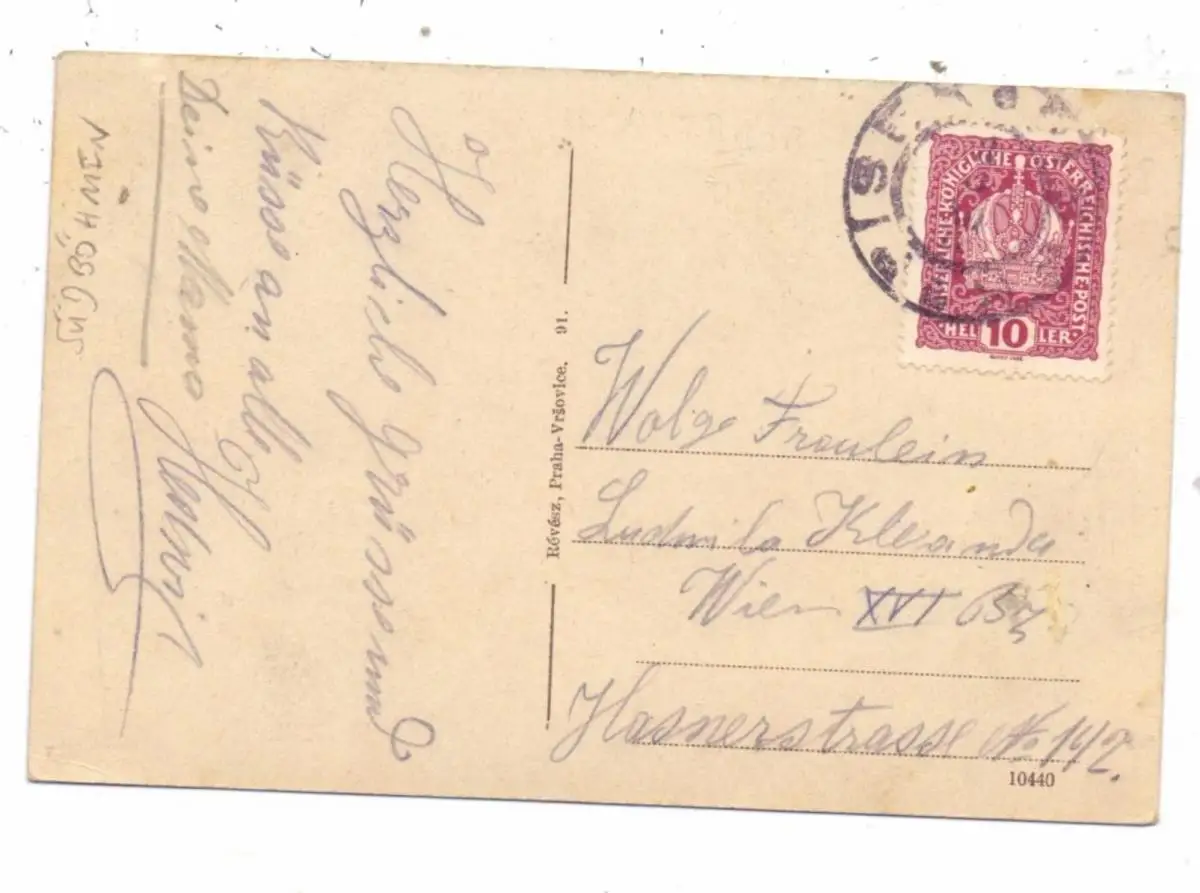 Herzliche Grüsse und
Küsse an alle
Deine Mama
Révész, Praha-Vršovice. 91.
KAISERLICHE·KÖNIGLICHE ÖSTERREICHISCHE·POST·
HEL 10 LER
Fraulein
Ludmila
Wien XVI Bz
Hasnerstrasse No 142.
10440